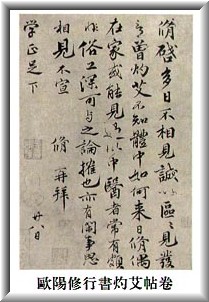 脩啓多日不相見誠以區區見發
言曾灼艾不知體中如何來日脩偶
在家或能見過此中醫者常有頗
非俗工深可與之論搉也亦有閑事思
相見不宣 脩再拜 廿八日
学正足下
歐陽修行書灼艾帖卷